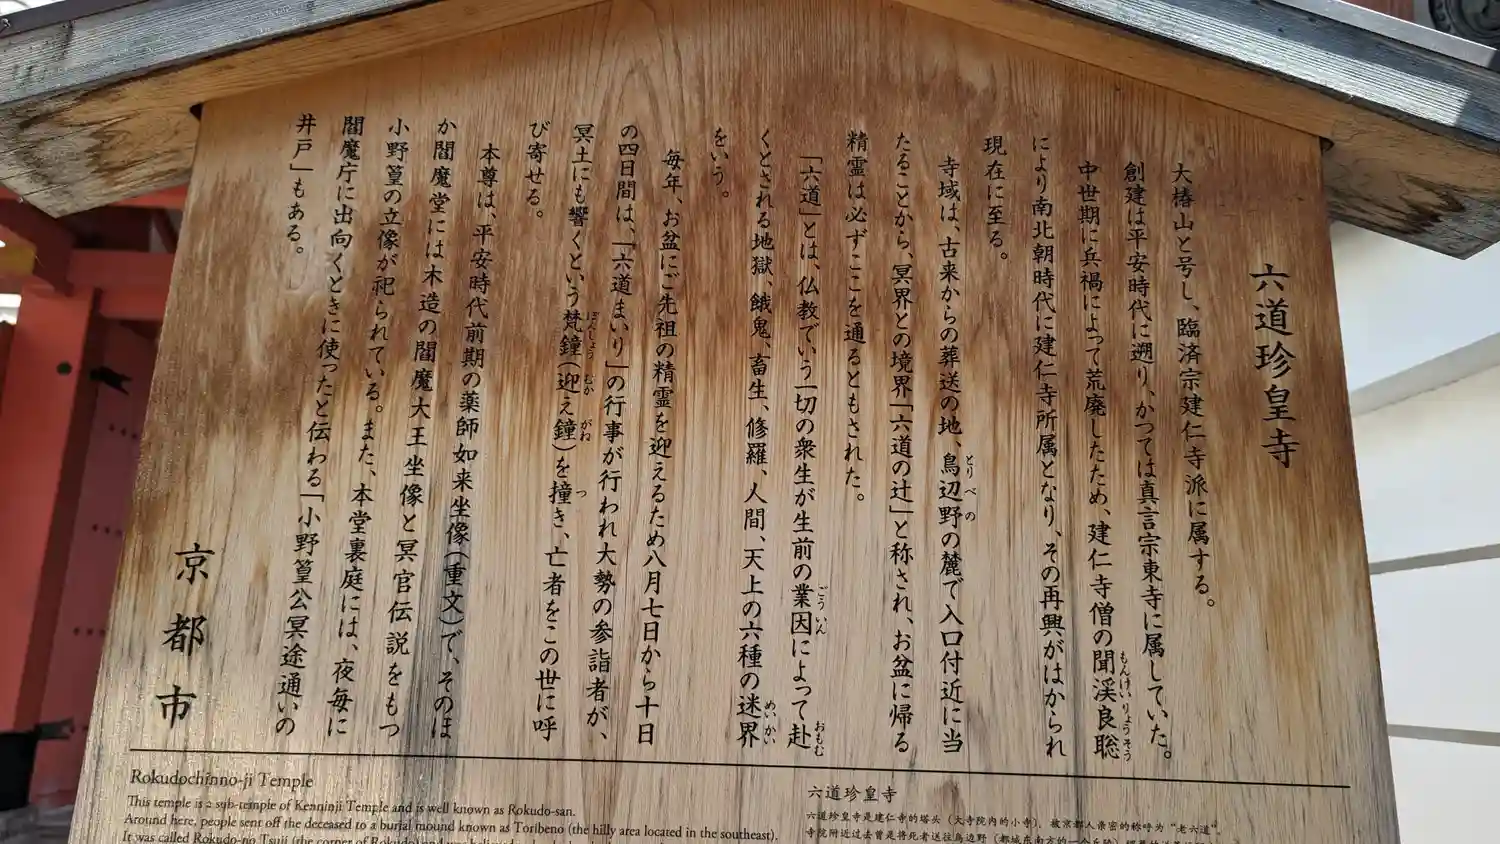 六道珍皇寺
大椿山と号し、臨済宗建仁寺派に属する。
創建は平安時代に遡り、かつては真言宗東寺に属していた。
中世期に兵禍によって荒廃したため、建仁寺僧の聞渓良聡
もんけいりょうそう
により南北朝時代に建仁寺所属となり、その再興がはかられ
現在に至る。
寺域は、古来からの葬送の地、鳥辺野の麓で入口付近に当
とりべの
たることから、冥界との境界「六道の辻」と称され、お盆に帰る
精霊は必ずここを通るともされた。
「六道」とは、仏教でいう一切の衆生が生前の業因によって赴
ごういん
おもむ
くとされる地獄、餓鬼、畜生、修羅、人間、天上の六種の迷界
めいかい
をいう。
毎年、お盆にご先祖の精霊を迎えるため八月七日から十日
の四日間は、「六道まいり」の行事が行われ大勢の参詣者が、
冥土にも響くという梵鐘(迎え鐘)を撞き、亡者をこの世に呼
ぼんしょう
むか
がね
つ
び寄せる。
本尊は、平安時代前期の薬師如来坐像(重文)で、そのほ
か閻魔堂には木造の閻魔大王坐像と冥官伝説をもつ
小野篁の立像が祀られている。また、本堂裏庭には、夜毎に
閻魔庁に出向くときに使ったと伝わる「小野篁公冥途通いの
井戸」もある。
京都市
Rokudochinno-ji Temple
This temple is a sub-temple of Kenninji Temple and is well known as Rokudo-san.
Around here, people sent off the deceased to a burial mound known as Toribeno (the hilly area located in the southeast).
It was called Rokudo-no Tsuji (the corner of Rokudo) and was believed
六道珍皇寺
六道珍皇寺是建仁寺的塔头(大寺院内的小寺),被京都人亲密的称呼为“老六道”。
寺院附近过去曾是将死者送往鸟边野(都城东南方的一个丘陵)